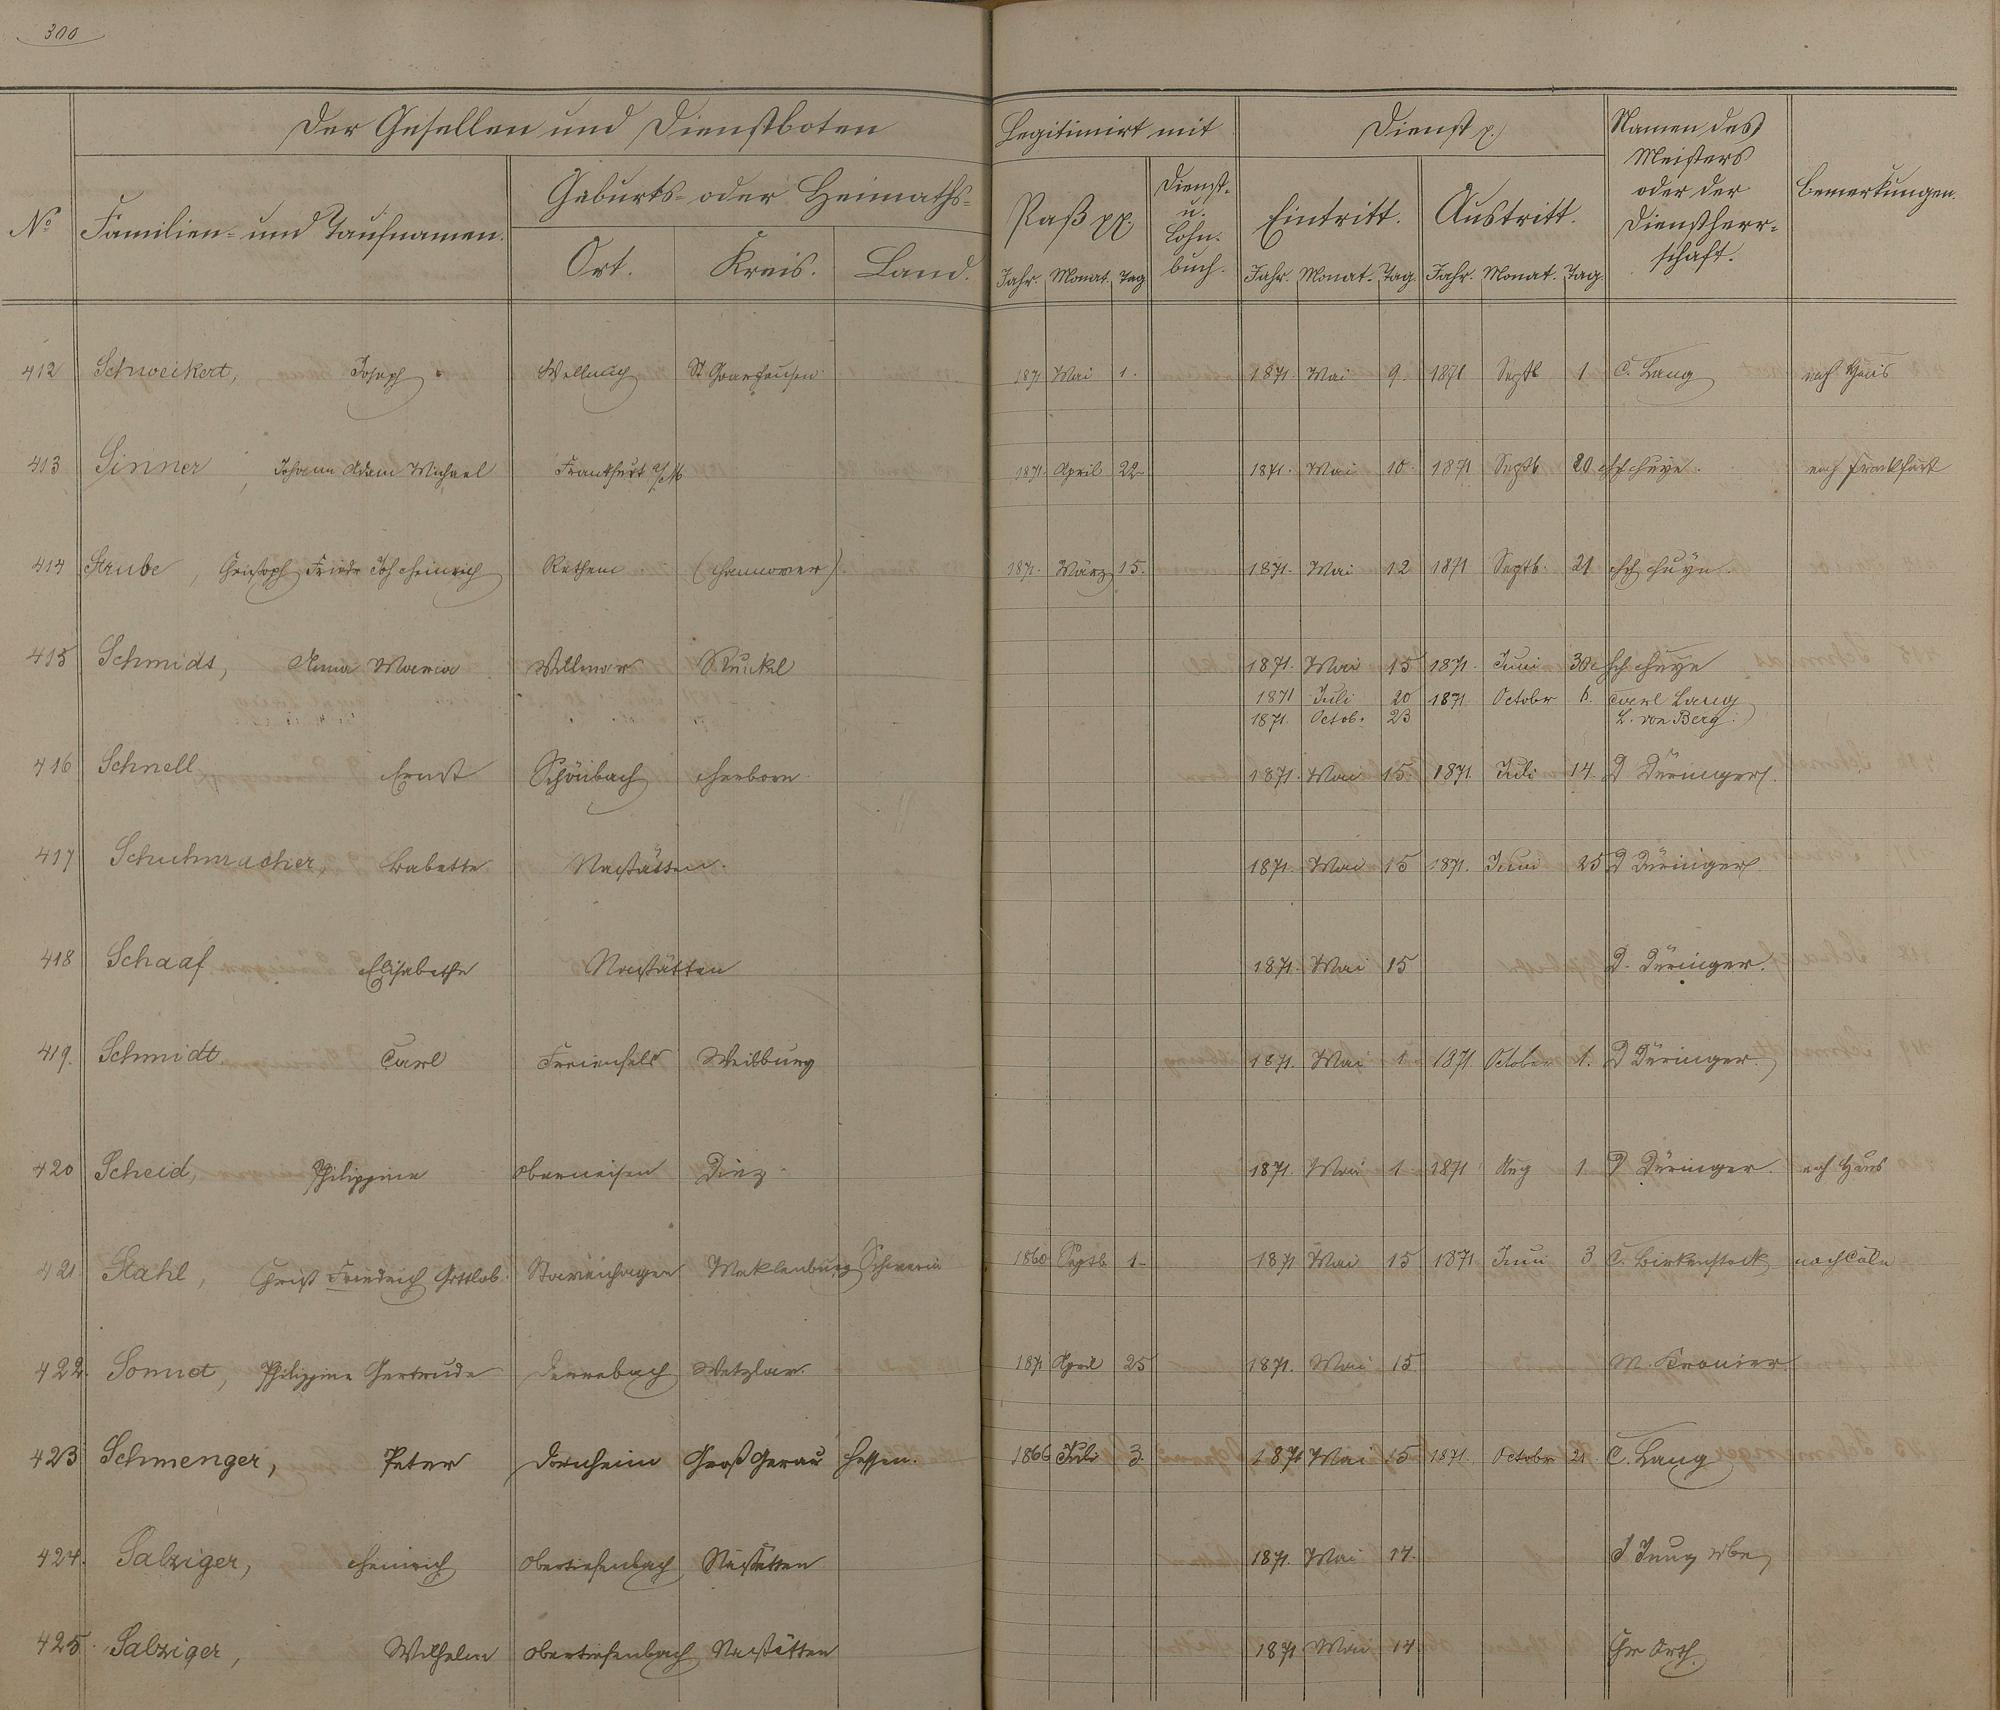 300
Der Gesellen und Dienstboten Legitimirt mit Dienst p. Namen des Meisters oder der Dienstherr-schaft. Bemerkungen.
No Familien- und Taufnamen. Geburts- oder Heimaths- Paß pp. Dienst- u. Lohn-buch. Eintritt. Austritt.
Ort. Kreis. Land. Jahr. Monat. Tag Jahr. Monat. Tag. Jahr. Monat. Tag.
412 Schweikert, Joseph Wellmich St Goarshausen 1871 Mai 1. 1871. Mai 9. 1871 Septb 1 C. Lang nach Haus
413 Sinner, Johann Adam Michael Frankfurt a/M. 1871. April 22 1871. Mai 10. 1871 Septb 20 Hch Huye. nach Frankfurt
414 Strube, Christoph Friedr Joh Heinrich Rethem (Hannover) 1871. März 15. 1871. Mai 12 1871 Septb. 21 Hch Huye.
415 Schmidt, Anna Maria Villmar Runkel 1871. Mai 15 1871. Juni 30 Hch Huye
1871 Juli 20 1871 October 6. Carl Lang
1871. Octob. 23 L. von Berg.
416 Schnell Ernst Schönbach Herborn. 1871. Mai 15. 1871. Juli 14. D Düringer.
417 Schuhmacher, Babette Nastätten. 1871. Mai 15 1871. Juni 25 D Düringer.
418 Schaaf Elisabethe Nastätten 1871. Mai 15 D. Düringer.
419. Schmidt. Carl Freienfels Weilburg 1871. Mai 1 1871. October 1. D Düringer.
420 Scheid, Philippine Oberneisen Diez. 1871. Mai 1 1871 Aug 1. D Düringer. nach Haus
421 Stahl, Christ Friedrich Gottlob. Stavenhagen Meklenburg Schwerin 1860 Septb. 1. 1871 Mai 15 1871 Juni 3 C. Birkenstock nach Cöln
422. Philippine Gertrude Wetzlar. 1871 April 25 1871. Mai 15
423 Schmenger, Peter Dornheim Groß Gerau Hessen. 1866 Juli 3. 1871 Mai 15 1871. October 21 C. Lang
424. Salziger, Heinrich Obertiefenbach Nastätten 1871. Mai 17. J Jung Wbe
425. Salziger, Wilhelm Obertiefenbach Nastätten 1871 Mai 17 Chr Orth.